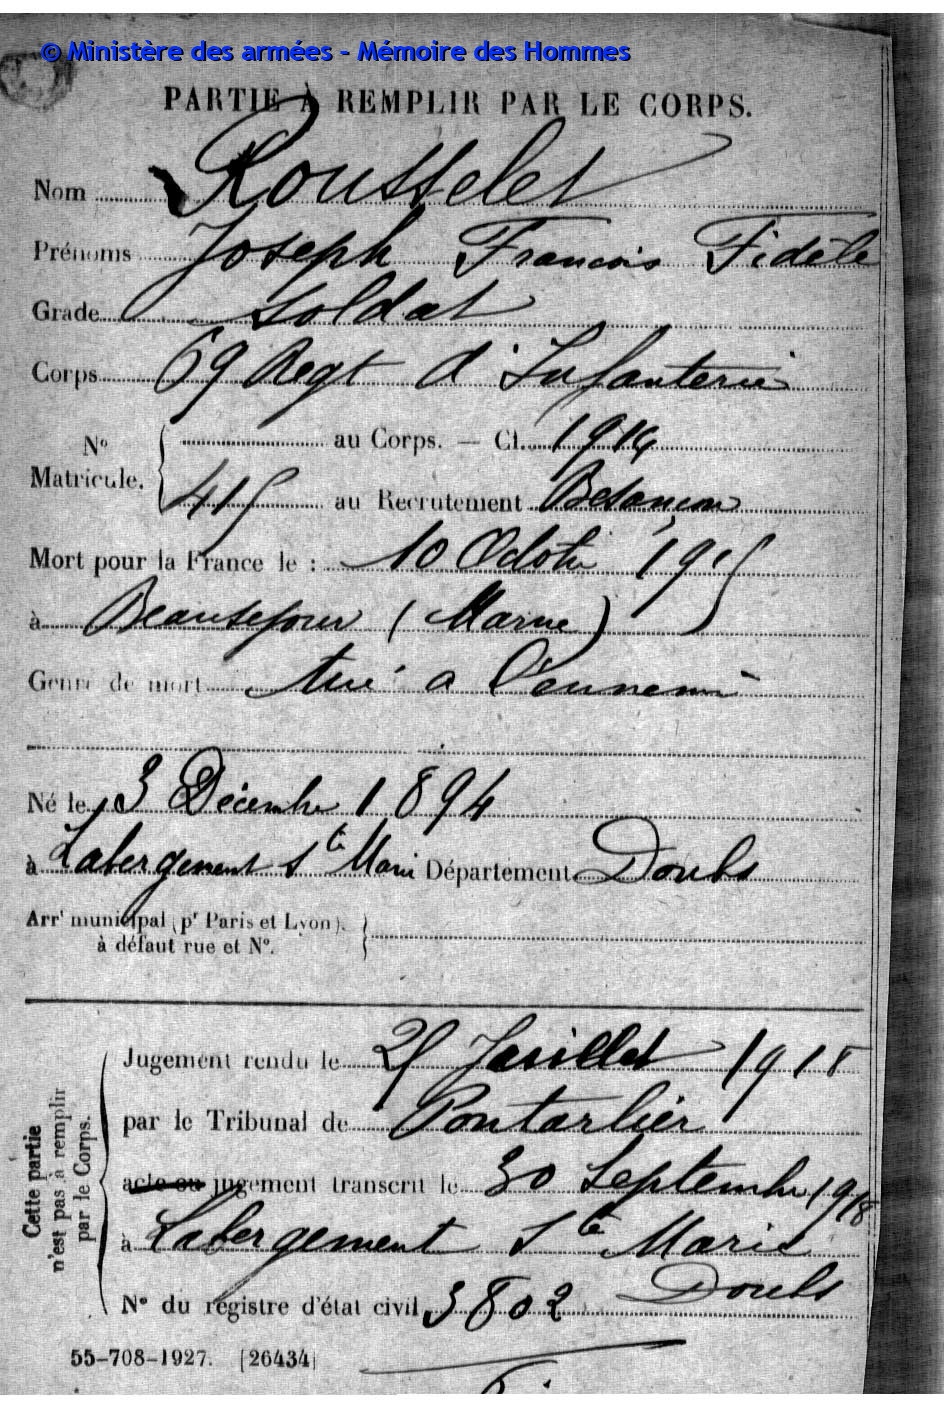 © Ministère des armées - Mémoire des Hommes
PARTIE À REMPLIR PAR LE CORPS.
Nom Rousselet
Prénoms Joseph François Fidèle
Grade Soldat
Corps 69 Regt d'Infanterie
N° Matricule. au Corps. — Cl. 1914
415 au Recrutement Besançon
Mort pour la France le : 10 Octobre 1915
à Beausejour (Marne)
Genre de mort tué a l'ennemi
Né le 3 Décembre 1894
à Labergement Ste Marie Département Doubs
Arrt municipal (pr Paris et Lyon),
à défaut rue et N°.
Cette partie n'est pas à remplir par le Corps.
Jugement rendu le 25 Juillet 1918
par le Tribunal de Pontarlier
acte ou jugement transcrit le 30 Septembre 1918
à Labergement Ste Marie
Doubs
N° du registre d'état civil 3802
55-708-1927. [26434]